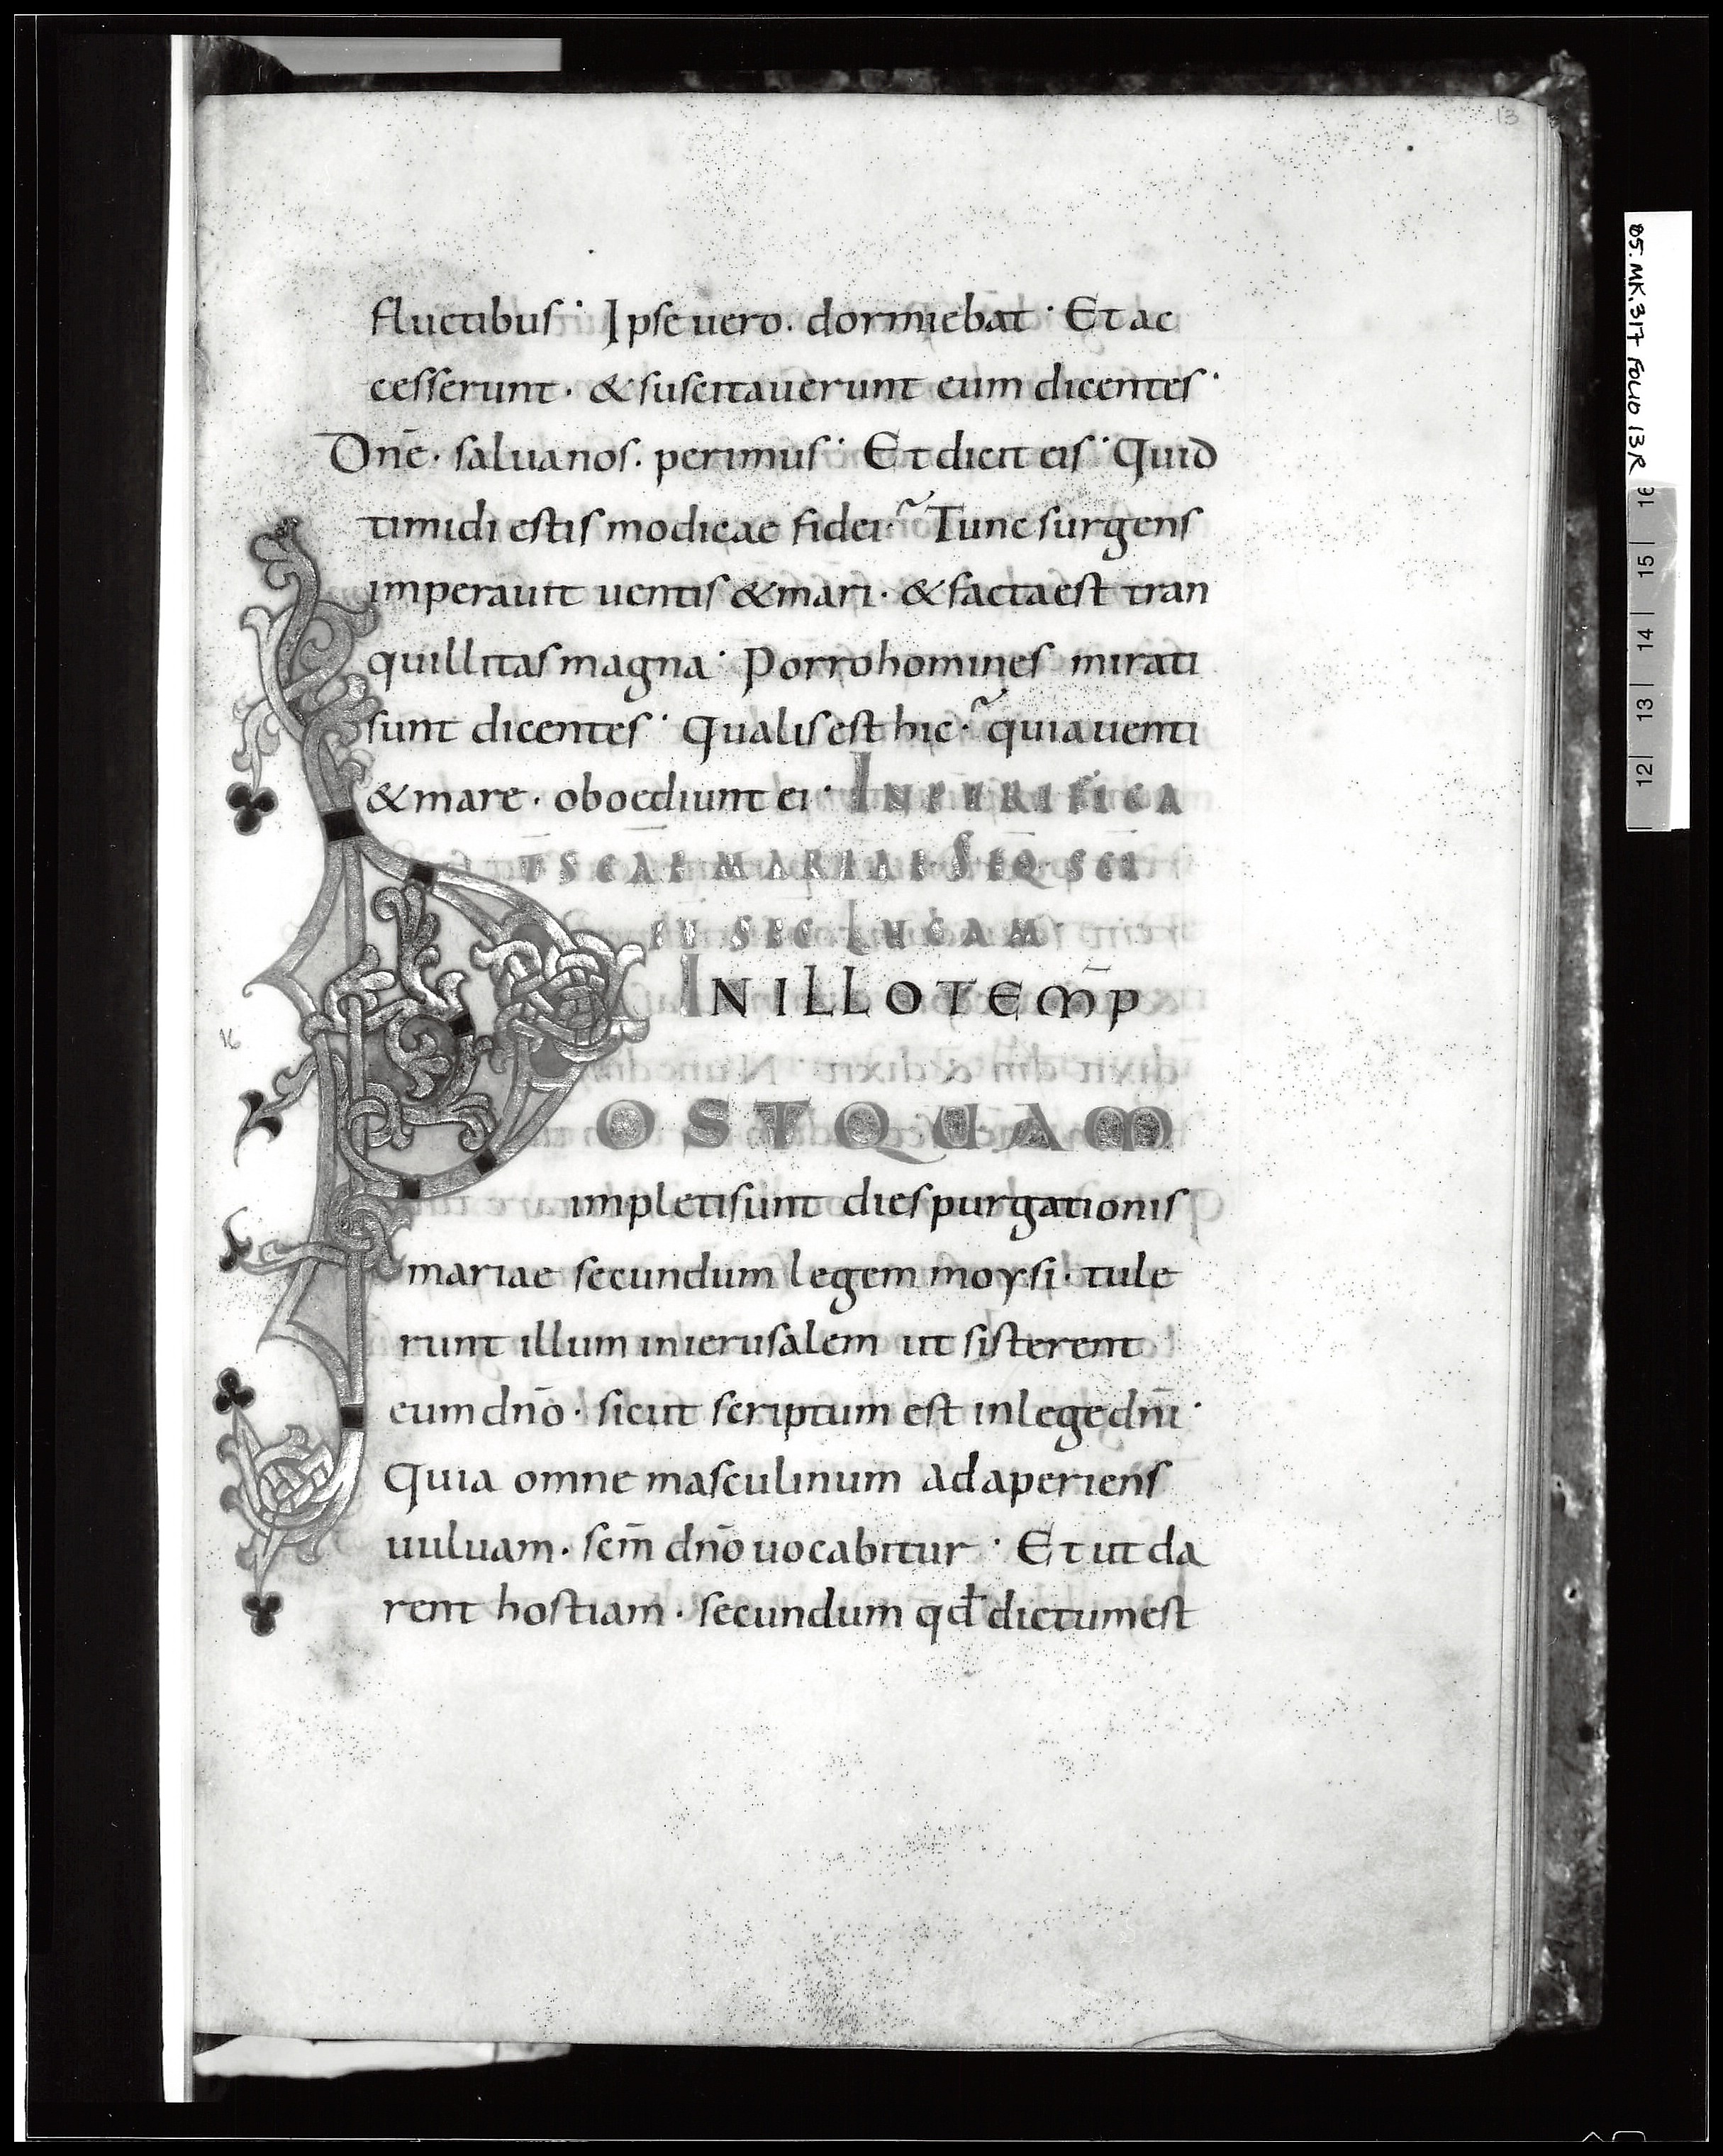 13
fluctibus· Ipse uero. dormiebat· Et ac
cesserunt· & suscitauerunt eum dicentes·
Dnē· saluanos. perimus· Et dicit eis· Quid
timidi estis modicae fidei· Tunc surgens
imperauit uentis & mari· & facta est tran
quillitas magna· Porro homines mirati
sunt dicentes· Qualis est hic· quia uenti
& mare· oboediunt ei· IN PURIFICA
T̄ SCAE MARIAE· SEQ̄ SCI
EV̄ SEC LUCAM·
IN ILLO TEM̄P
POSTQUAM
impleti sunt dies purgationis
mariae secundum legem moysi· tule
runt illum in ierusalem ut sisterent
eum dnō· sicut scriptum est in lege dnī·
Quia omne masculinum adaperiens
uuluam· scm̄ dnō uocabitur· Et ut da
rent hostiam· secundum qđ dictum est
16
85.MK.317 FOLIO 13R
12| 13| 14| 15| 16